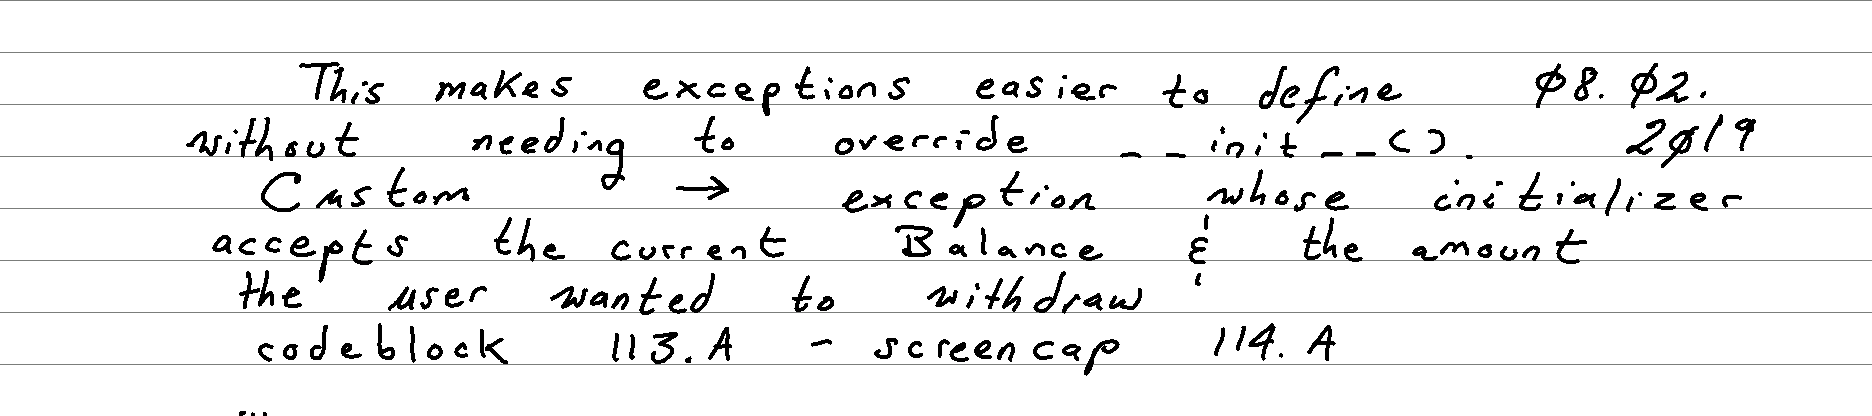 This makes exceptions easier to define 08.02.
without needing to override __init__(). 2019
Custom → exception whose initializer
accepts the current Balance & the amount
the user wanted to withdraw
codeblock 113.A - screencap 114.A